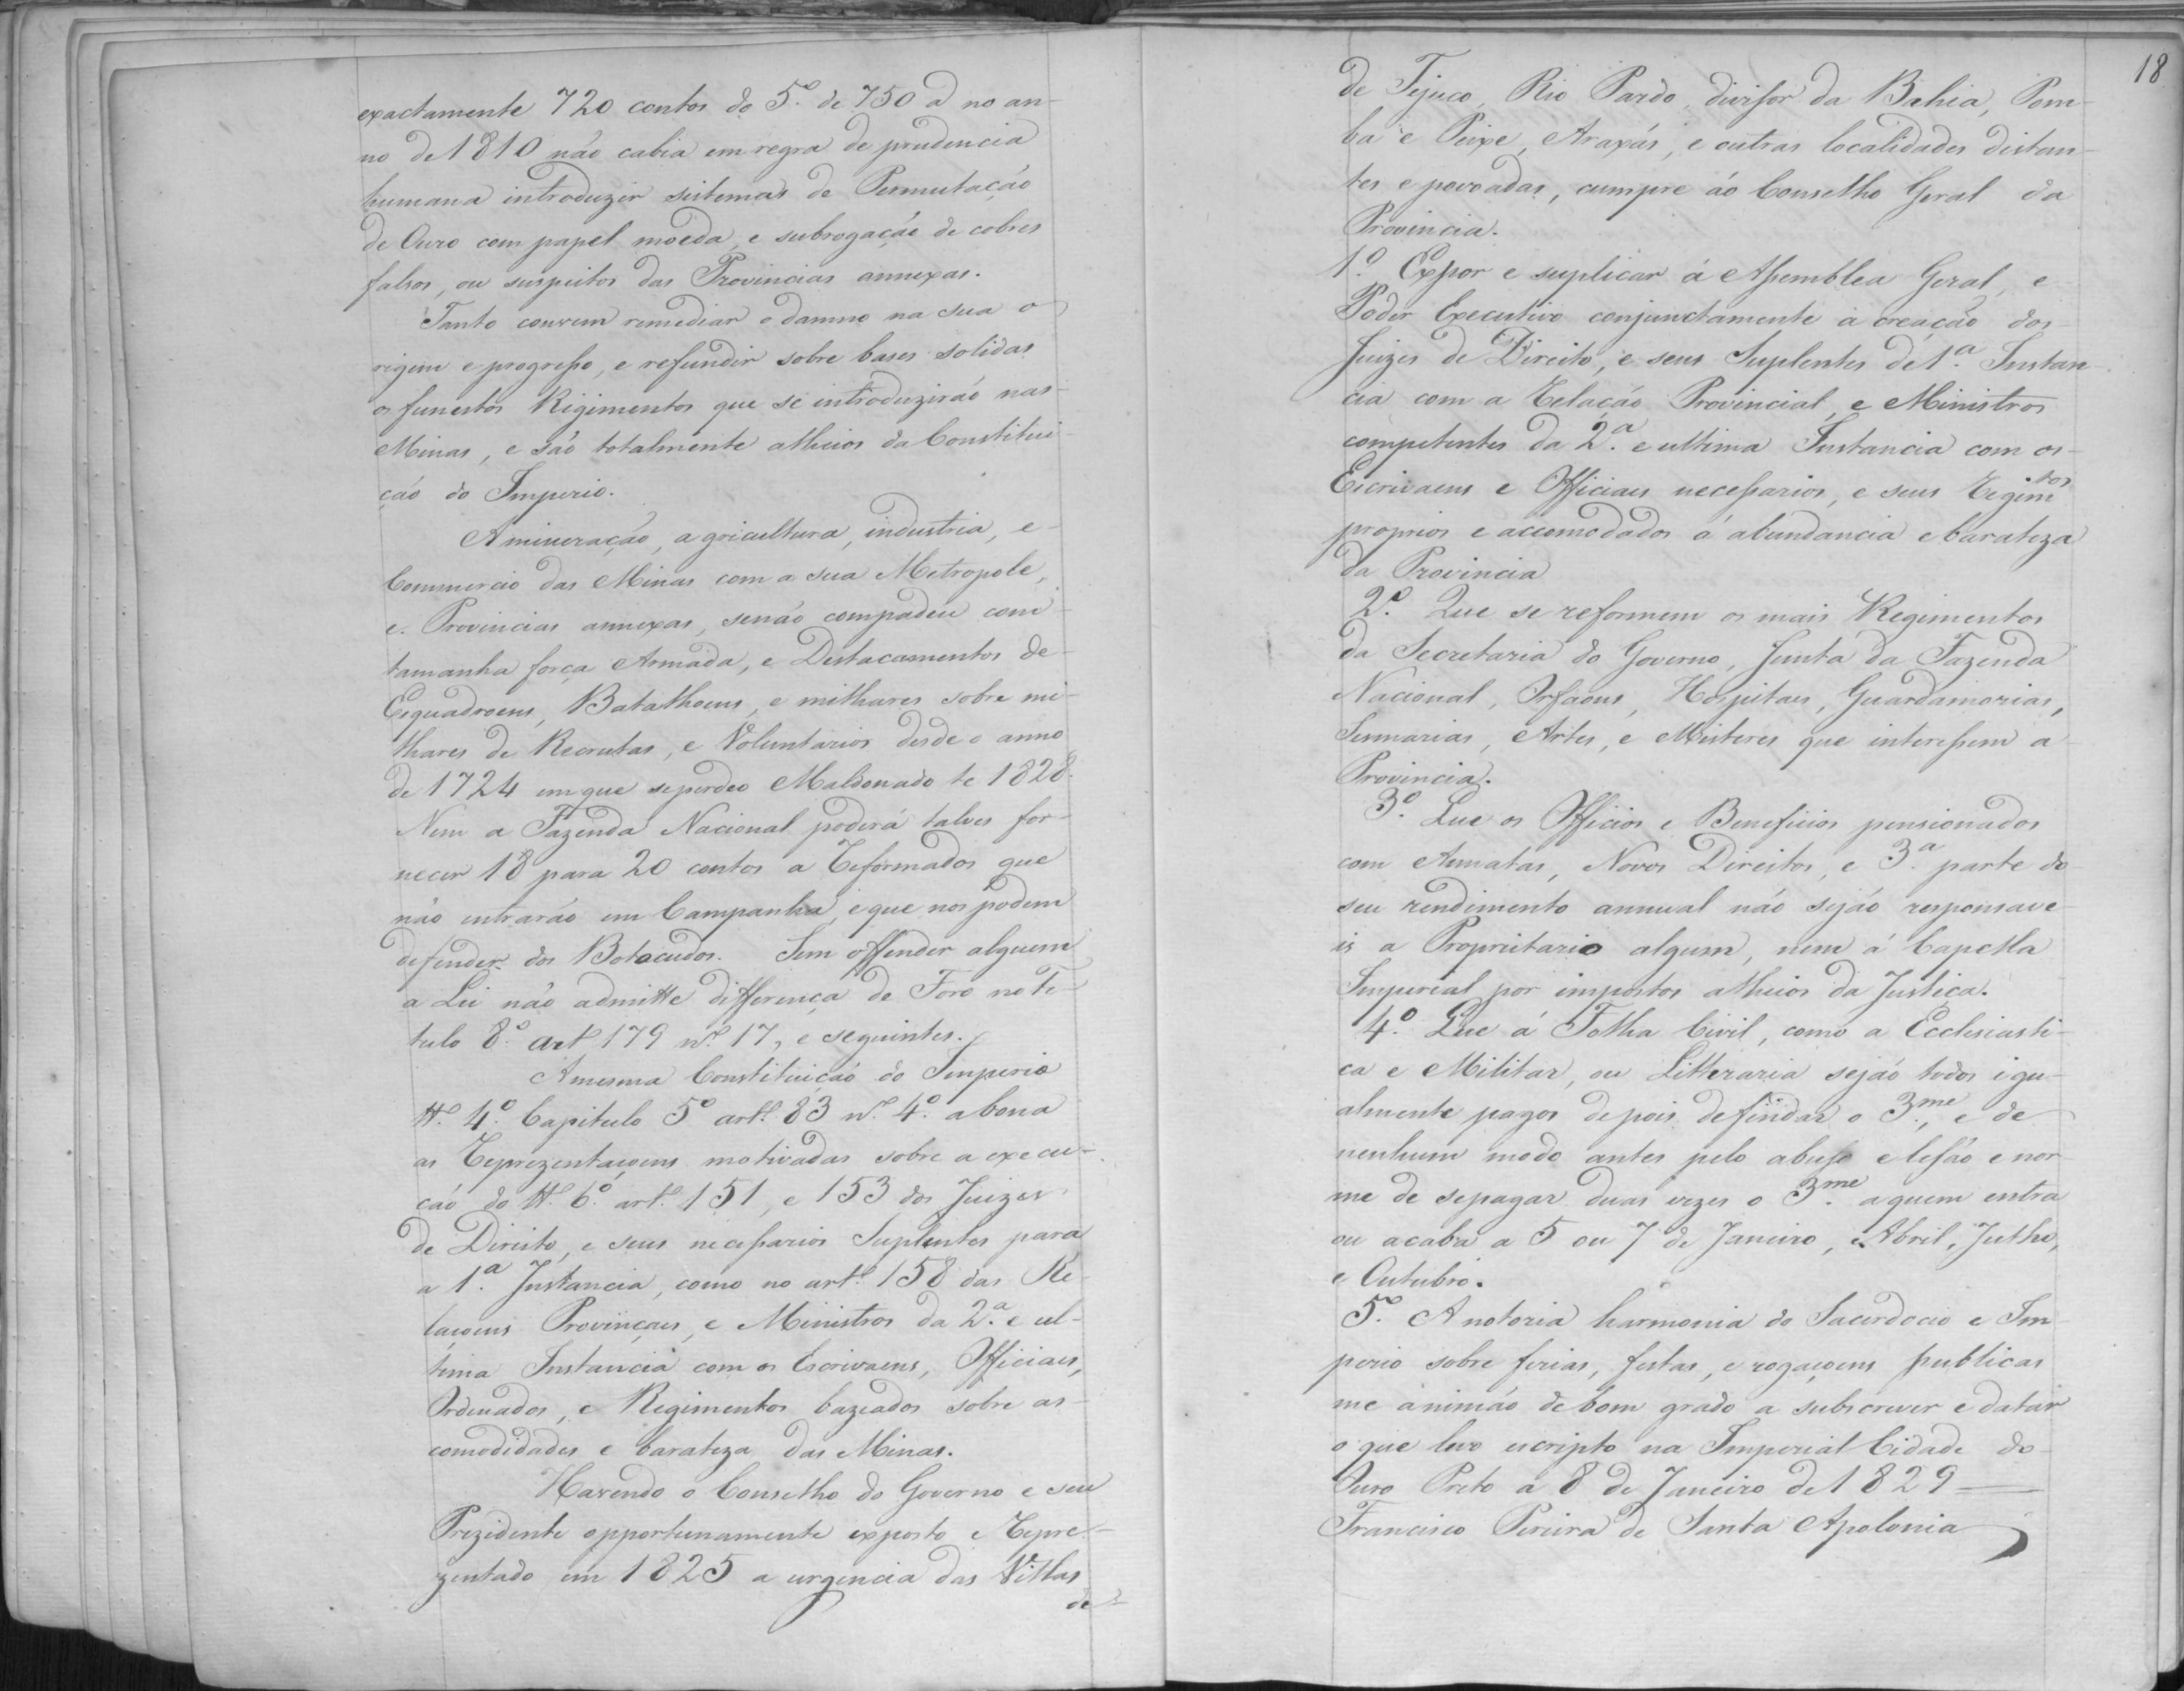 exactamente 720 contos do 5.º de 750 @ no an-
no de 1810 não cabia em regra de prudencia
humana introduzir sistemas de Permutação
de Ouro com papel moeda, e subrogação de cobres
falsos, ou suspeitos das Provincias annexas.
Tanto convem remediar o damno na sua o
rigem e progresso, e refundir sobre bases solidas
os funestos Regimentos que se introduzirão nas
Minas, e são totalmente alheios da Constitui-
ção do Imperio.
A mineração, agricultura, industria, e
Commercio das Minas com a sua Metropole,
e Provincias annexas, senão compadeu com
tamanha força Armada, e Destacamentos de
Esquadroens, Batalhoens, e milhares sobre mi-
lhares de Recrutas, e Voluntarios desde o anno
de 1724 em que seperdeo Maldonado te 1828.
Nem a Fazenda Nacional poderá talves for-
necer 18 para 20 contos a Reformados que
não entrarão em Campanha, e que nos podem
defender dos Botocudos. Sem offender alguem
a Lei não admitte differença de Foro no Ti-
tulo 8.º art 179 nº 17, e seguintes.
Amesma Constituição do Imperio
ttº. 4.º Capitulo 5º artº. 83 nº. 4º. abona
as Reprezentaçoens motivadas sobre a execu-
ção do ttº. 6.º artº. 151, e 153 dos Juizes
de Direito, e seus necessarios Suplentes para
a 1.ª Instancia, como no artº. 158 das Re-
laçoens Provinçaes, e Ministros da 2.ª e ul-
tima Instancia com os Escrivaens, Officiaes,
Ordenados, e Regimentos bazeados sobre as
comodidades e barateza das Minas.
Havendo o Conselho do Governo e seu
Prezidente opportunamente exposto e Repre-
zentado em 1825 a urgencia das Villas
de
18
de Tejuco, Rio Pardo, divisor da Bahia, Pom-
ba e Peixe, Araxás, e outras localidades distan-
tes e povoadas, cumpre áo Conselho Geral da
Provincia.
1.º Expor e suplicar á Assemblea Geral, e
Poder Executivo conjunctamente a creação dos
Juizes de Direito, e seus Suplentes de 1.ª Instan-
cia com a Relação Provincial, e Ministros
competentes da 2.ª e ultima Instancia com os
Escrivaens e Officiaes necessarios, e seus Regim.tos
proprios e accomodados á abundancia e barateza
da Provincia
2.º Que se reformem os mais Regimentos
da Secretaria do Governo, Junta da Fazenda
Nacional, Orfaons, Hospitaes, Guardamorias,
Sesmarias, Artes, e Misteres que interessem a
Provincia.
3.º Que os Officios e Beneficios pensionados
com Annatas, Novos Direitos, e 3.ª parte do
seu rendimento annual não sejão responsave-
is a Proprietario algum, nem á Capella
Imperial por impostos alheios da Justiça.
4.º Que á Folha Civil, como a Ecclesiasti-
ca e Militar, ou Litteraria sejão todos igu-
almente pagos depois de findar o 3.me, e de
nenhum modo antes pelo abuso e lesão enor
me de sepagar duas vezes o 3.me aquem entra
ou acaba a 5 ou 7 de Janeiro, Abril, Julho,
e Outubro.
5.º A notoria harmonia do Sacerdocio e Im
perio sobre ferias, festas, e rogaçoens publicas
me animão de bom grado a subscrever e datar
o que levo escripto na Imperial Cidade do
Ouro Preto a 8 de Janeiro de 1829
Francisco Pereira de Santa Apolonia